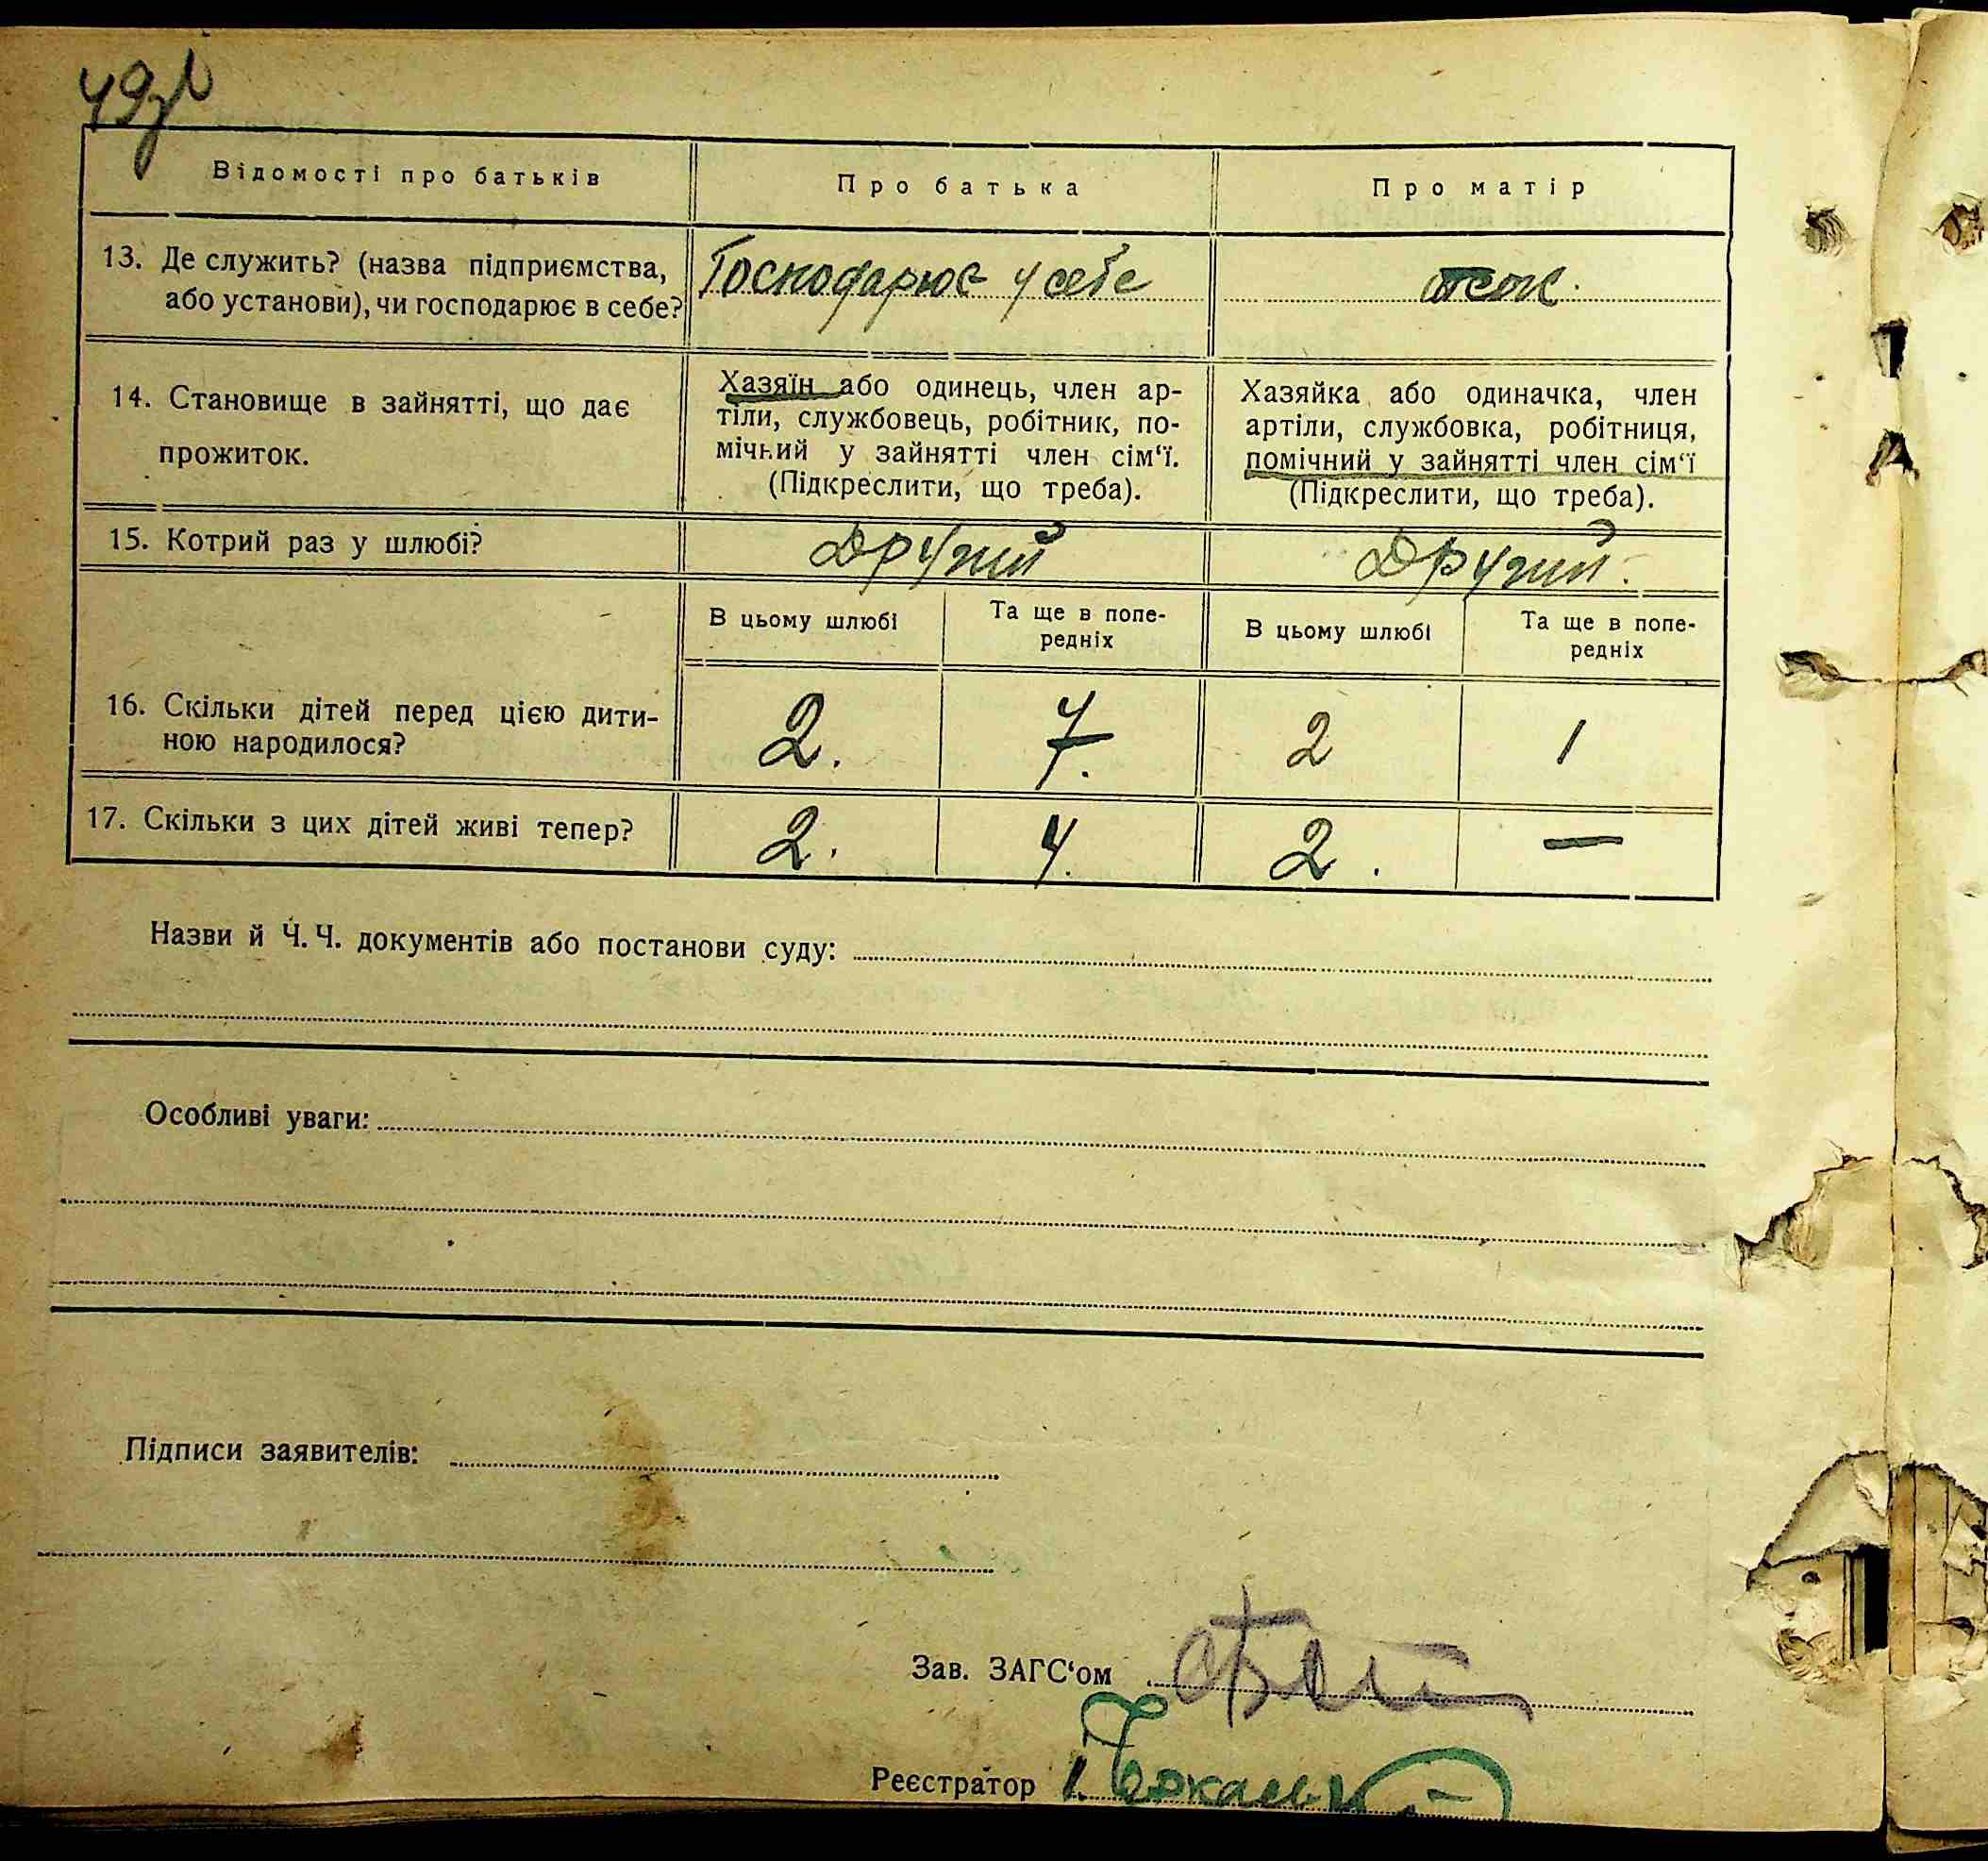 49зв
Відомості про батьків
Про батька
Про матір
13. Де служить? (назва підприємства,
або установи), чи господарює в себе?
Господарює у себе
тож.
14. Становище в зайнятті, що дає
прожиток.
Хазяїн або одинець, член ар-
тіли, службовець, робітник, по-
мічний у зайнятті член сім‘ї.
(Підкреслити, що треба).
Хазяйка або одиначка, член
артіли, службовка, робітниця,
помічний у зайнятті член сім‘ї
(Підкреслити, що треба).
15. Котрий раз у шлюбі?
Другий
Другий.
В цьому шлюбі
Та ще в попе-
редніх
В цьому шлюбі
Та ще в попе-
редніх
16. Скільки дітей перед цією дити-
ною народилося?
2.
7.
2
1
17. Скільки з цих дітей живі тепер?
2.
4.
2.
—
Назви й Ч. Ч. документів або постанови суду:
Особливі уваги:
Підписи заявителів:
Зав. ЗАГС‘ом
Реєстратор